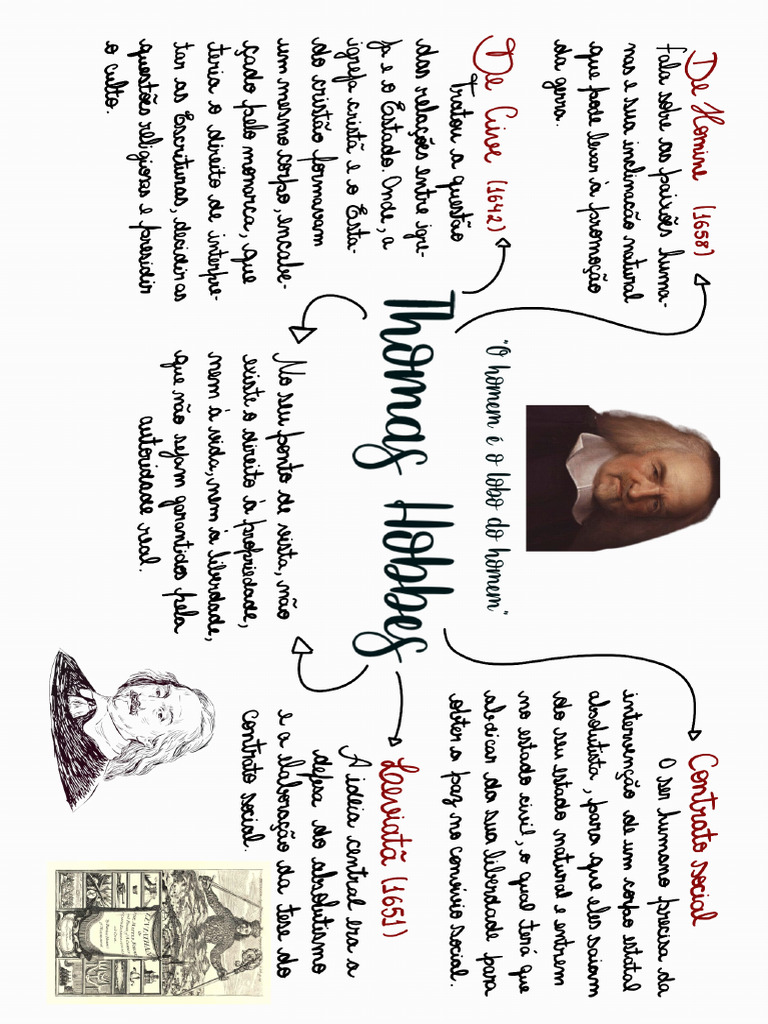 De Homine (1658)
Fala sobre as paixões huma-
nas e sua inclinação natural
que pode levar à promoção
da gerra.
De Cive (1642)
Tratou a questão
das relações entre igre-
ja e o Estado. Onde, a
igreja cristã e o Esta-
do cristão formavam
um mesmo corpo, encabe-
çado pelo monarca, que
teria o direito de interpre-
tar as Escrituras, decidir as
questões religiosas e presidir
o culto.
"O homem é o lobo do homem"
Thomas Hobbes
No seu ponto de vista, não
existe o direito à propriedade,
nem à vida, nem à liberdade,
que não sejam garantidos pela
autoridade real.
Contrato social
O ser humano precisa da
intervenção de um corpo estatal
absolutista, para que eles saiam
do seu estado natural e entrem
no estado civil, o qual terá que
abdicar da sua liberdade para
obter a paz no convívio social.
Laeviatã (1651)
A ideia central era a
defesa do absolutismo
e a elaboração da tese do
contrato social.
LEVIATHAN